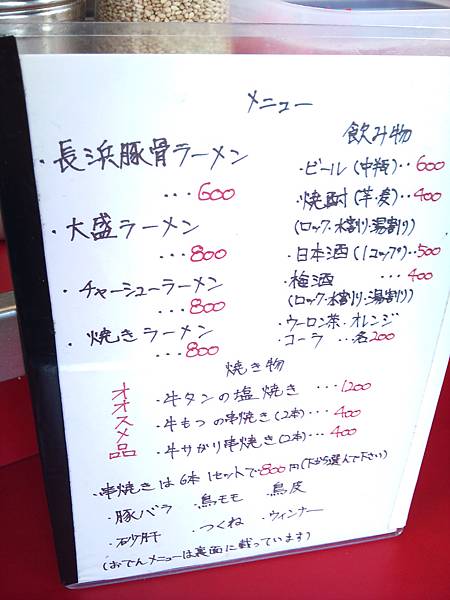 メニュー
・長浜豚骨ラーメン
・・・600
・大盛ラーメン
・・・800
・チャーシューラーメン
・・・800
・焼きラーメン
・・・800
飲み物
・ビール(中瓶)・・600
・焼酎(芋・麦)・・400
(ロック・水割り・湯割り)
・日本酒(1コップ)・・500
・梅酒 ・・・400
(ロック・水割り・湯割り)
・ウーロン茶・オレンジ
・コーラ ・・・各200
焼き物
オオスメ品
・牛タンの塩焼き ・・・1200
・牛もつの串焼き(2本)・・・400
・牛サガリ串焼き(2本)・・・400
・串焼きは6本1セットで800円(下から選んで下さい)
・豚バラ ・鳥モモ ・鳥皮
・砂肝 ・つくね ・ウィンナー
(おでんメニューは裏面に載っています)